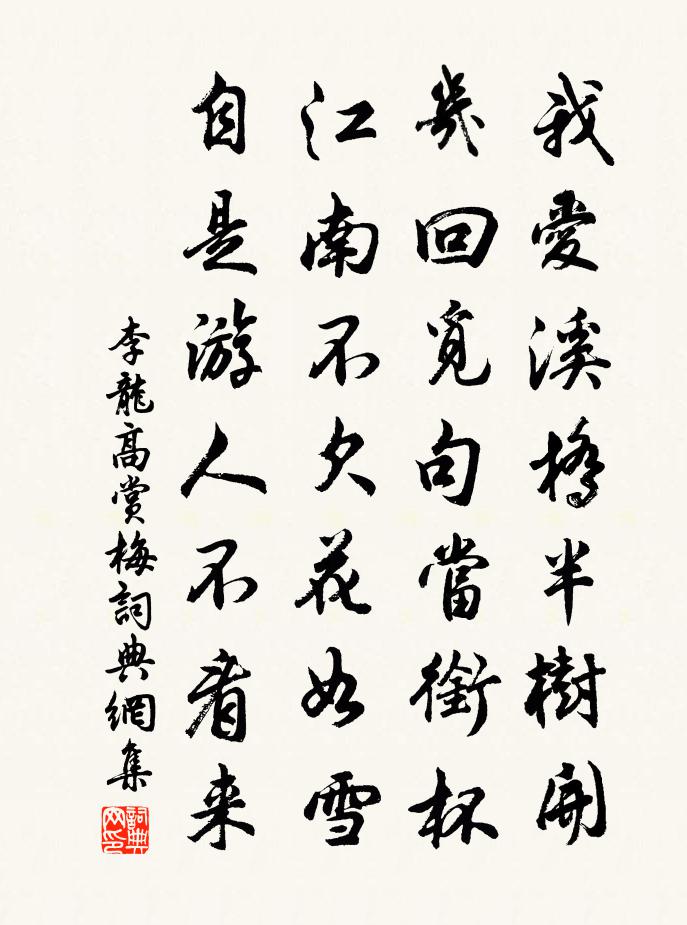 我愛溪橋半樹開
幾回覓句當銜杯
江南不欠花如雪
自是游人不看来
李龍高賞梅詞典網集
詞典网印